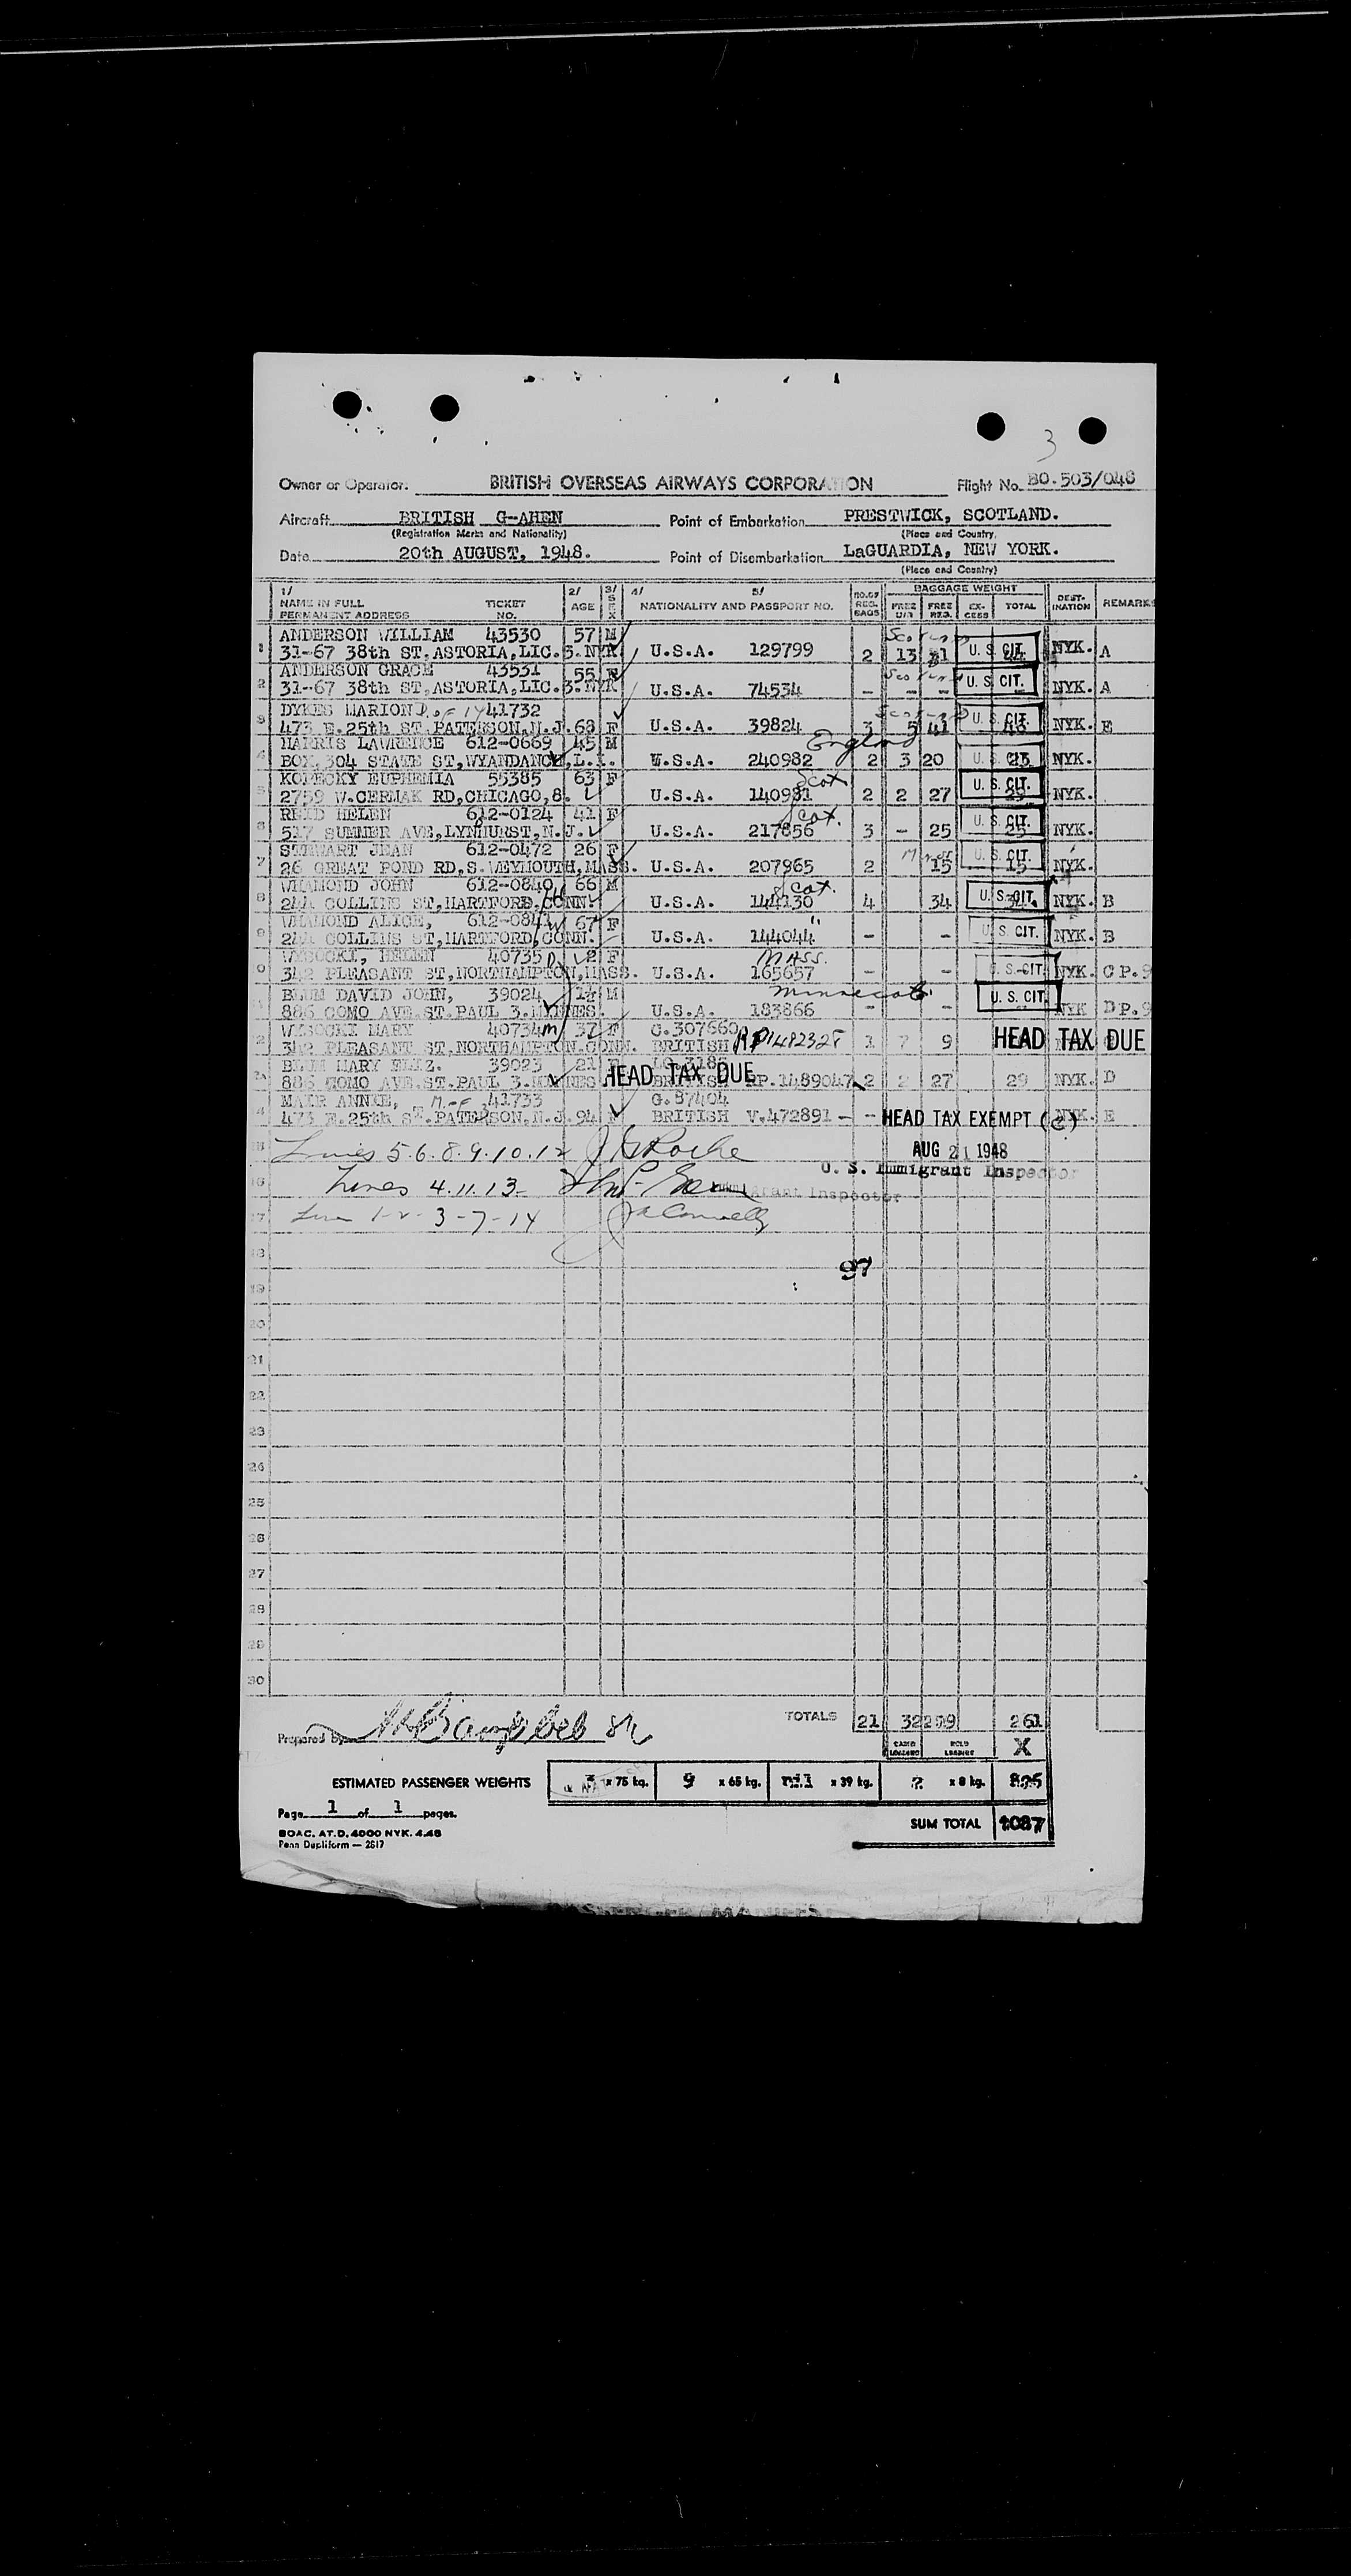 3
Owner or Operator. BRITISH OVERSEAS AIRWAYS CORPORATION Flight No. BO.503/048
Aircraft BRITISH G-AHEN Point of Embarkation PRESTWICK, SCOTLAND.
(Registration Marks and Nationality) (Place and Country)
Date 20th AUGUST, 1948. Point of Disembarkation LaGUARDIA, NEW YORK.
(Place and Country)
1/ 2/ 3/ 4/ 5/ NO. OF REG. BAGS BAGGAGE WEIGHT DEST-INATION REMARKS
NAME IN FULL TICKET AGE SEX NATIONALITY AND PASSPORT NO. FREE FREE REG. EX-CESS TOTAL
PERMANENT ADDRESS NO.
ANDERSON WILLIAM 43530 57 M
1 31-67 38th ST. ASTORIA, LIC. 3. NYK U.S.A. 129799 2 13 U.S. CIT. NYK. A
ANDERSON GRACE 43531 55 F
2 31-67 38th ST, ASTORIA, LIC. 3. NYK U.S.A. 74534 - - - U.S. CIT. NYK. A
DYKES MARION D of 14 41732
3 473 E. 25th ST. PATERSON, N.J. 68 F U.S.A. 39824 3 5 41 U.S. CIT. NYK. E
HARRIS LAWRENCE 612-0669 45 M England
4 BOX. 304 STATE ST, WYANDANCH, L.I. U.S.A. 240982 2 3 20 U.S. CIT. NYK.
KOPECKY EUPHEMIA 55385 63 F Scot
5 2759 W. CERMAK RD, CHICAGO, 8. U.S.A. 140981 2 2 27 U.S. CIT. NYK.
REID HELEN 612-0124 41 F Scot.
6 517 SUMMER AVE, LYNHURST, N.J. U.S.A. 217856 3 - 25 U.S. CIT. NYK.
STEWART JEAN 612-0472 26 F
7 26 GREAT POND RD, S. WEYMOUTH, MASS. U.S.A. 207965 2 15 U.S. CIT. 15 NYK.
WHAMOND JOHN 612-0840 66 M Scot.
8 24A COLLINS ST, HARTFORD, CONN. U.S.A. 144130 4 34 U.S. CIT. NYK. B
WHAMOND ALICE, 612-0841 67 F "
9 24A COLLINS ST, HARTFORD, CONN. U.S.A. 144044 - - U.S. CIT. NYK. B
WYSOCKI, HELEN 40735 2 F MASS.
342 PLEASANT ST, NORTHAMPTON, MASS. U.S.A. 165657 - - U.S. CIT. NYK. C P.9
BLUM DAVID JOHN, 39024 M Minnesota
886 COMO AVE. ST. PAUL 3. U.S.A. 183866 - - U.S. CIT. NYK D P.9
WYSOCKI MARY 40734 37 F G.307660
342 PLEASANT ST, NORTHAMPTON. CONN. BRITISH 1482328 1 7 9 HEAD TAX DUE
BLUM MARY ELIZ. 39023 21 F
886 COMO AVE. ST. PAUL 3. HEAD TAX DUE BRITISH RP.1489047 2 2 27 29 NYK. D
MAIR ANNIE, M-F 41733 G.87404
473 E. 25th ST. PATERSON, N.J. 94 F BRITISH V.472891 - - HEAD TAX EXEMPT (c) NYK. E
Lines 5.6.8.9.10.12 J Roche AUG 21 1948
U. S. Immigrant Inspector
Lines 4.11.13- Immigrant Inspector
17 Line 1-2-3-7-14 Connelly
18
97
19
20
21
22
23
24
25
26
27
28
29
30
TOTALS 21 32 229 261
Prepared by Campbell
CABIN LOADING HOLD LOADING X
ESTIMATED PASSENGER WEIGHTS 3 x 75 kg. 9 x 65 kg. nil x 39 kg. 2 x 8 kg.
Page 1 of 1 pages. SUM TOTAL 1087
BOAC. AT.D. 4000 NYK. 4.48
Penn Dupliform — 2617